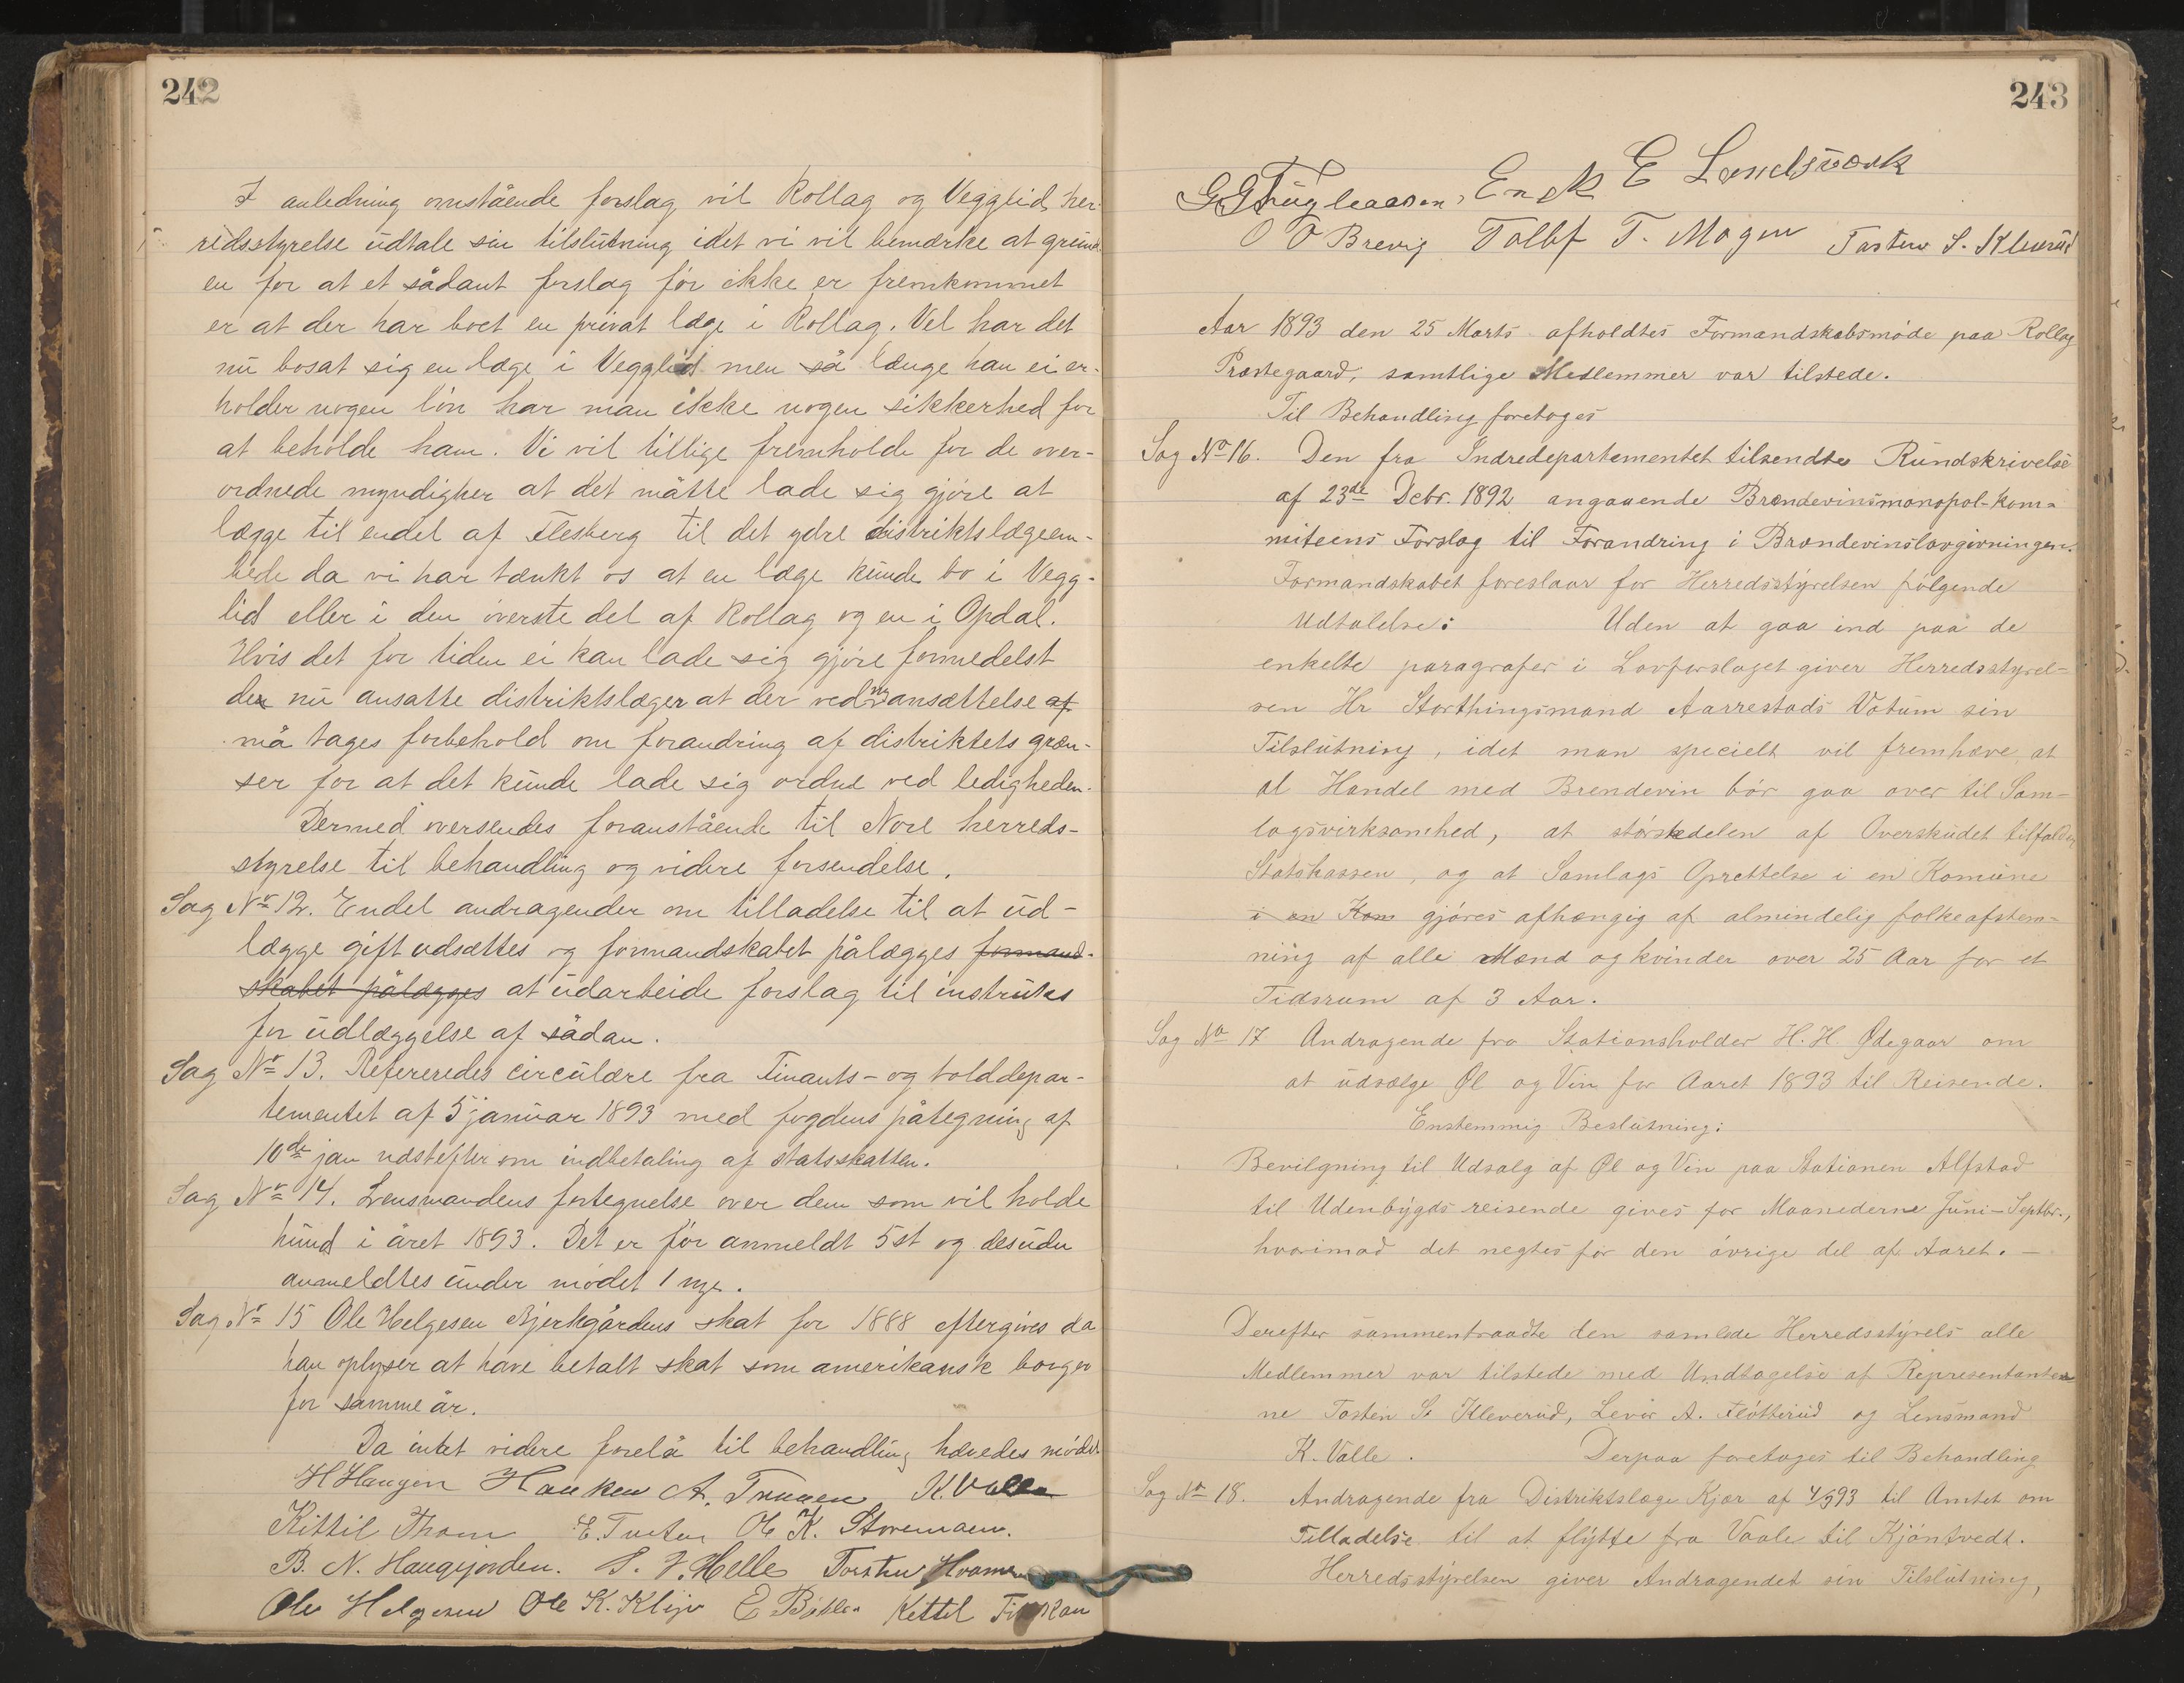 242
I anledning omstående forslag vil Rollag og Vegglid her-
redsstyrelse udtale sin tilslutning idet vi vil bemærke at grund-
en for at et sådant forslag før ikke er fremkommet
er at der har boet en privat læge i Rollag. Vel har det
nu bosat sig en læge i Vegglid men så længe han ei er-
holder nogen løn har man ikke nogen sikkerhed for
at beholde ham. Vi vil tillige fremholde for de over-
ordnede myndigher at det måtte lade sig gjøre at
lægge til endel af Flesberg til det ydre distriktslægeem-
bede da vi har tænkt os at en læge kunde bo i Vegg-
lid eller i den øverste del af Rollag og en i Opdal.
Hvis det for tiden ei kan lade sig gjøre formedelst
der nu ansatte distriktslæger at der ved ny ansættelse af
må tages forbehold om forandring af distriktets græn-
ser for at det kunde lade sig ordne ved ledigheden.
Dermed oversendes foranstående til Nore herreds-
styrelse til behandling og videre forsendelse.
Sag Nr 12. Endel andragender om tilladelse til at ud-
lægge gift udsættes og formandskabet pålægges formand-
skabet pålægges at udarbeide forslag til instruks
for udlæggelse af sådan.
Sag Nr 13. Refereredes circulære fra Finants- og tolddepar-
tementet af 5 januar 1893 med fogdens påtegning af
10de jan udstefter om indbetaling af statsskatten.
Sag Nr 14. Lensmandens fortegnelse over dem som vil holde
hund i året 1893. Det er før anmeldt 5 st og desuden
anmeldtes under mødet 1 nye.
Sag Nr 15 Ole Helgesen Bjerkgårdens skat for 1888 eftergives da
han oplyser at have betalt skat som amerikansk borger
for samme år.
Da intet videre forelå til behandling hævedes mødet
H Haugen Hauken A. Traaen K. Valle
Kittil Thom E. Tveten Ole K. Storemoen.
B. N. Haugijorden. T. J. Helle Torsten Hvam
Ole Helgesen Ole K. Klev E Bøhler Kettil
243
G G Fuglesaasen, E Landsværk
O O Brevig Tollef T. Mogen Tosten S. Kleverud
Aar 1893 den 25 Marts afholdtes Formandskabsmøde paa Rollag
Præstegaard, samtlige Medlemmer var tilstede.
Til Behandling foretoges
Sag No 16. Den fra Indredepartementet tilsendte Rundskrivelse
af 23de Debr. 1892 angaaende Brændevinsmonopol-kom-
miteens Forslag til Forandring i Brændevinslovgivningen.
Formandskabet foreslaar for Herredsstyrelsen følgende
Udtalelse: Uden at gaa ind paa de
enkelte paragrafer i Lovforslaget giver Herredsstyrel-
sen Hr Storthingsmand Aarrestads Votum sin
Tilslutning, idet man specielt vil fremhæve, at
al Handel med Brendevin bør gaa over til Sam-
lagsvirksomhed, at størstedelen af Overskudet tilfalder
Statskassen, og at Samlags Oprettelse i en Komune
i en Kom gjøres afhængig af almindelig folkeafstem-
ning af alle Mænd og kvinder over 25 Aar for et
Tidsrum af 3 Aar.
Sag No 17 Andragende fra Stationsholder H. H Ødegaar om
at udsælge Øl og Vin for Aaret 1893 til Reisende.
Enstemmig Beslutning:
Bevilgning til Udsalg af Øl og Vin paa Stationen Alfstad
til Udenbygds reisende gives for Maanederne Juni-Septbr.,
hvorimod det negtes for den øvrige del af Aaret. -
Derefter sammentraadte den samlede Herredsstyrels alle
Medlemmer var tilstede med Undtagelse af Representanter
ne Tosten S. Kleverud, Levor A. Fløtterud og Lensmand
K. Valle. Derpaa foretoges til Behandling
Sag No 18. Andragende fra Distriktslæge Kjær af 4/3 93 til Amtet om
Tilladelse til at flytte fra Vaale til Kjøntvedt.
Herredsstyrelsen giver Andragendet sin Tilslutning,